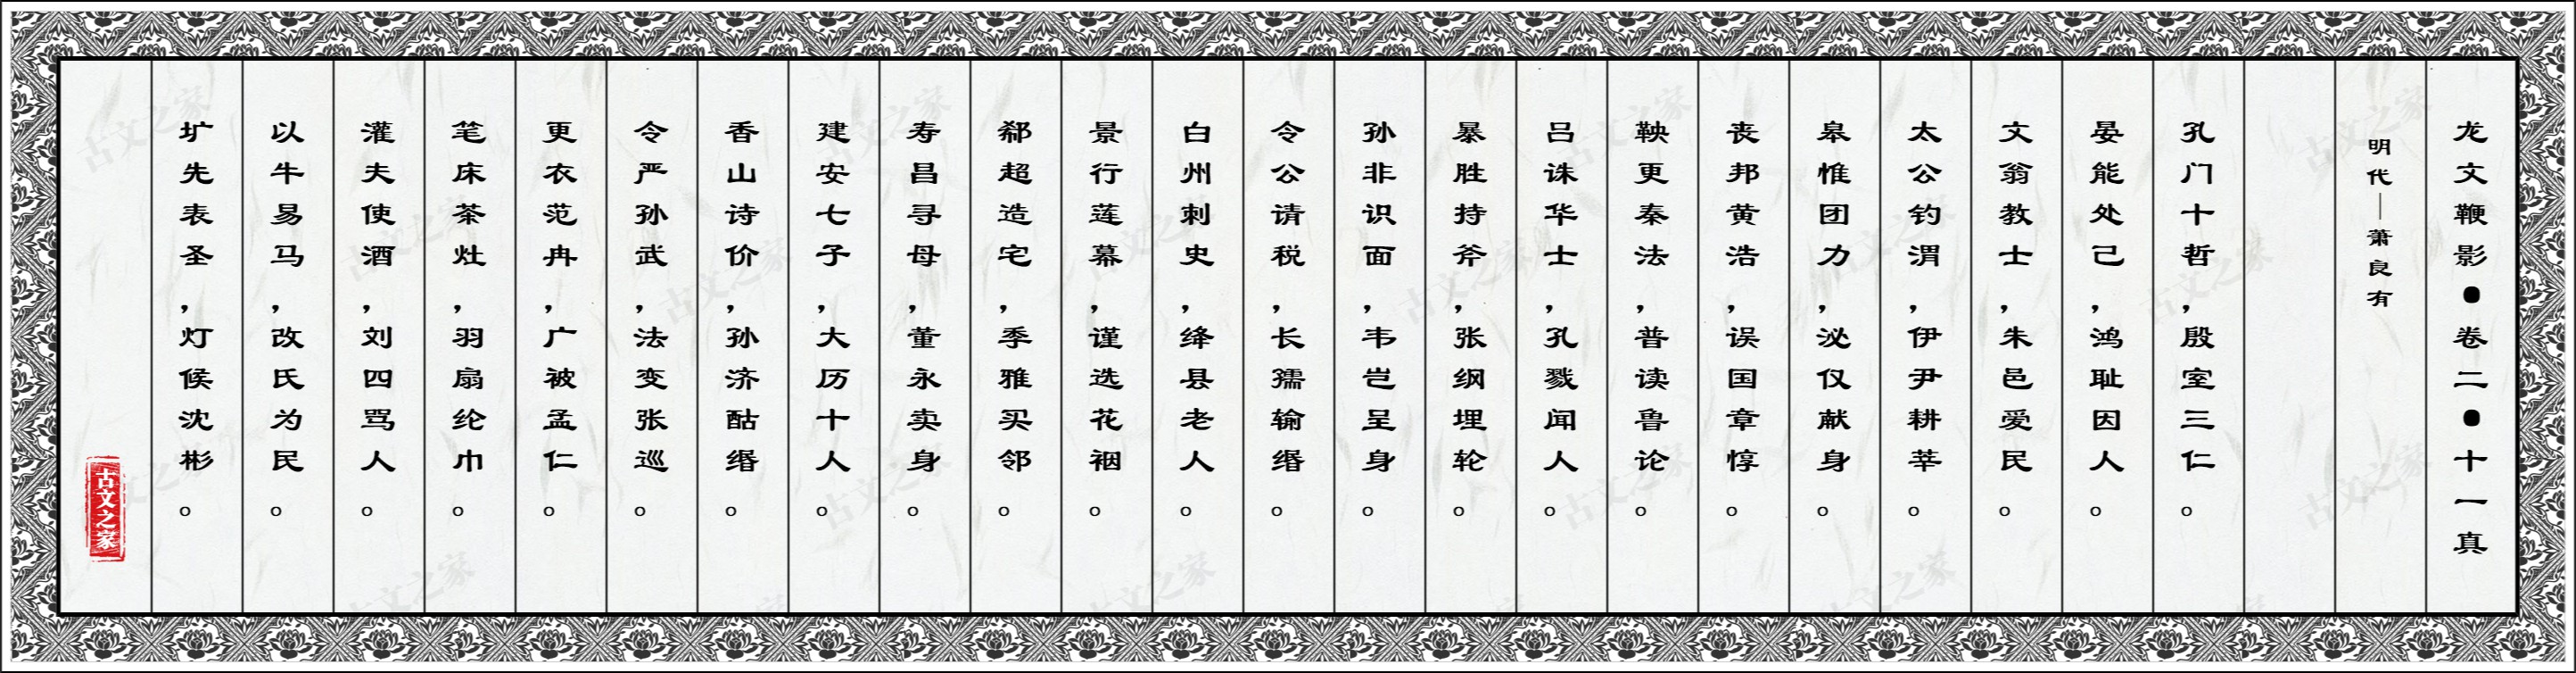 龙文鞭影●卷二●十一真
明代—萧良有
孔门十哲，殷室三仁。
晏能处己，鸿耻因人。
文翁教士，朱邑爱民。
太公钓渭，伊尹耕莘。
皋惟团力，泌仅献身。
丧邦黄浩，误国章惇。
鞅更秦法，普读鲁论。
吕诛华士，孔戮闻人。
暴胜持斧，张纲埋轮。
孙非识面，韦岂呈身。
令公请税，长孺输缗。
白州刺史，绛县老人。
景行莲幕，谨选花裀。
郗超造宅，季雅买邻。
寿昌寻母，董永卖身。
建安七子，大历十人。
香山诗价，孙济酤缗。
令严孙武，法变张巡。
更衣范冉，广被孟仁。
笔床茶灶，羽扇纶巾。
灌夫使酒，刘四骂人。
以牛易马，改氏为民。
圹先表圣，灯候沈彬。
古文之家